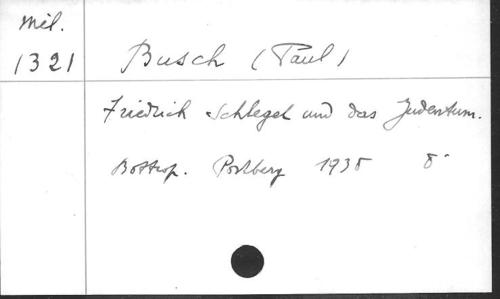 Mil.
1321
Busch (Paul)
Friedrich Schlegel und das Judentum.
Bottrop. Postberg 1938 8°